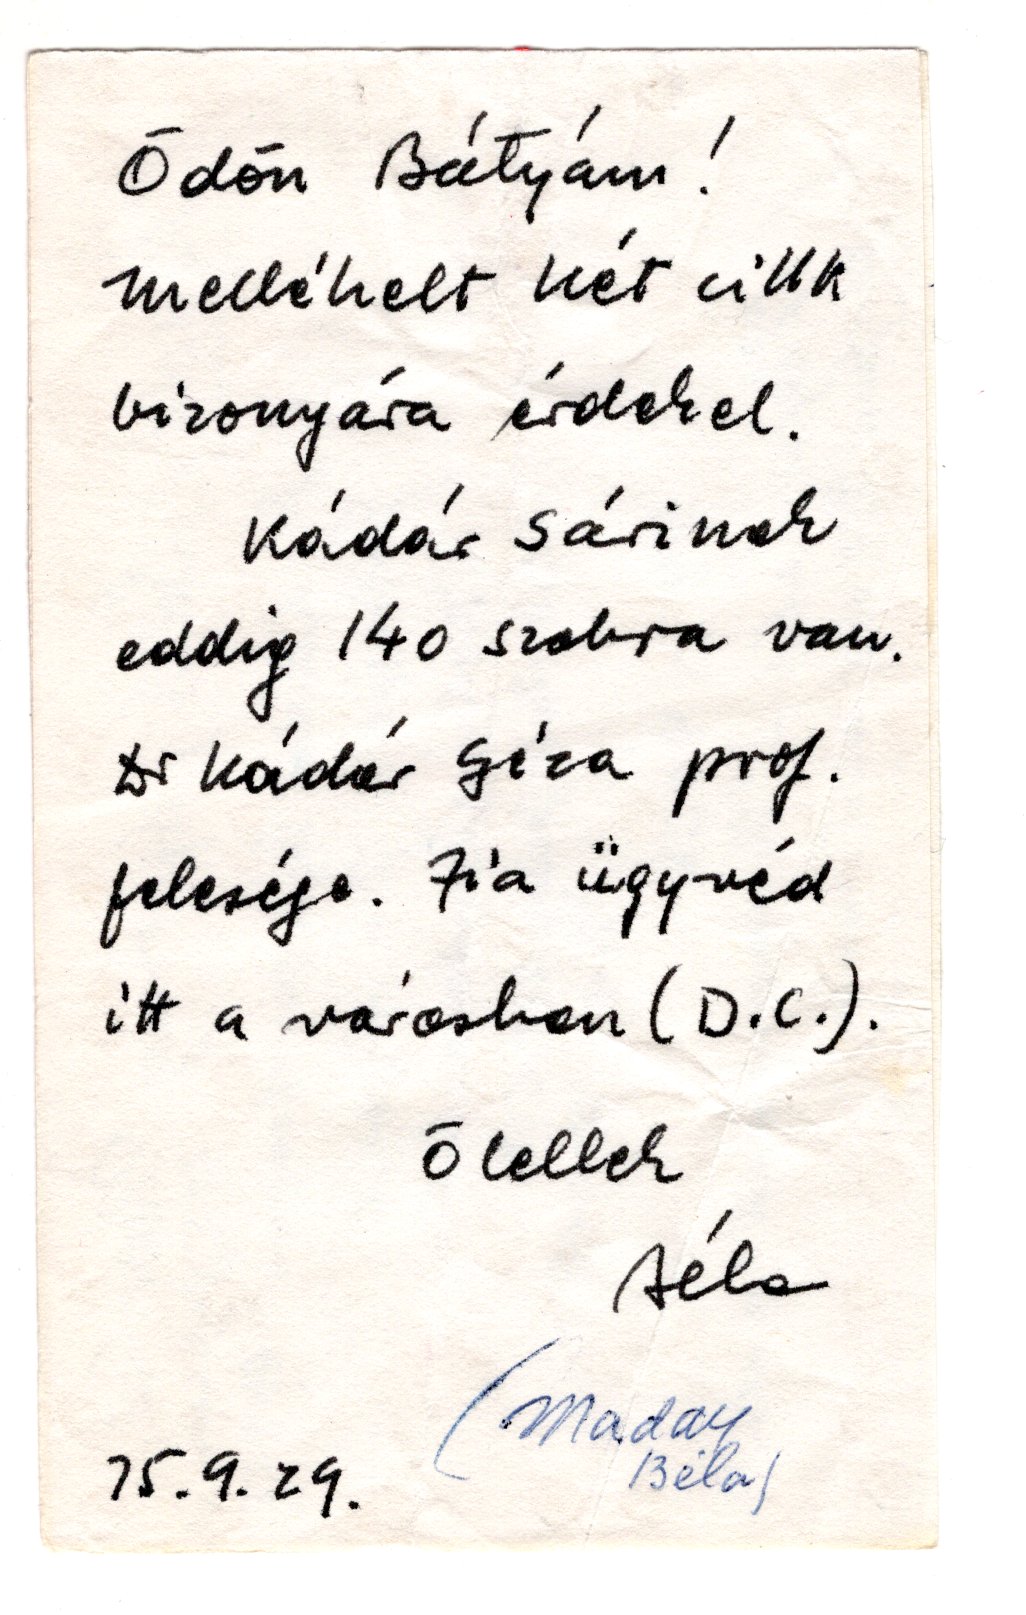 Ödön Bátyám!
Mellékelt két cikk
bizonyára érdekel.
Kádár Sárinak
eddig 140 szobra van.
Dr Kádár Géza prof.
felesége. Fia ügyvéd
itt a városban (D.C.).
Ölellek
Béla
(Maday
Béla)
75.9.29.